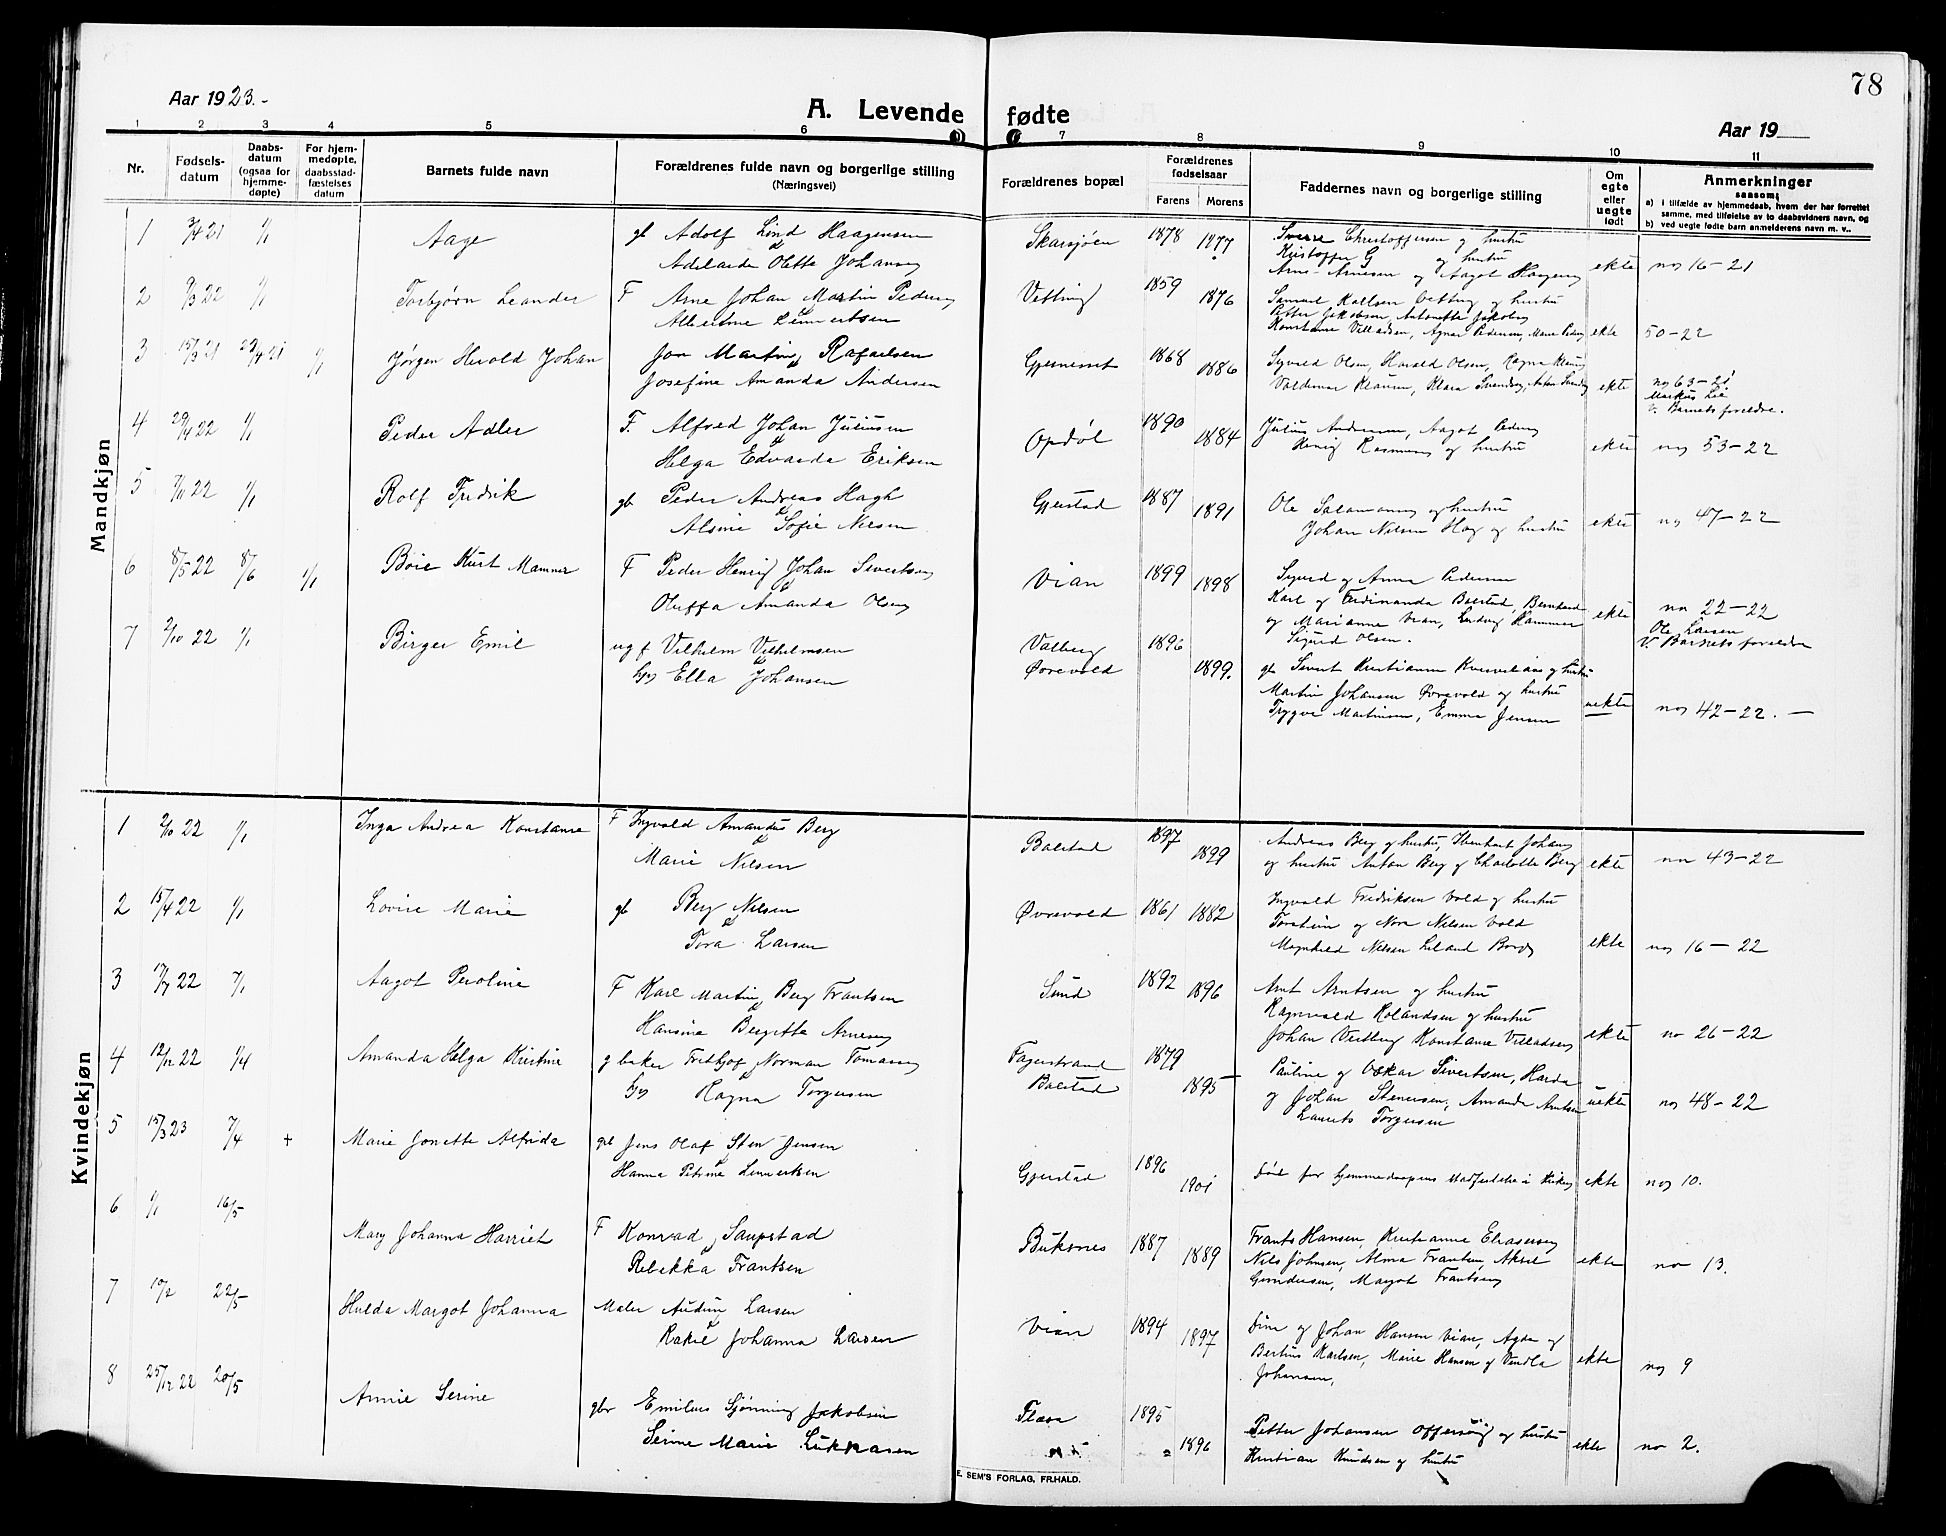 78
Aar 1923.-
A. Levende fødte
Aar 19
1 2 3 4 5 6 7 8 9 10 11
Nr.
Fødsels-
datum
Daabs-
datum
(ogsaa for
hjemme-
døpte)
For hjem-
medøpte,
daabsstad-
fæstelses
datum
Barnets fulde navn
Forældrenes fulde navn og borgerlige stilling
(Næringsvei)
Forældrenes bopæl
Forældrenes
fødselsaar
Farens Morens
Faddernes navn og borgerlige stilling
Om
egte
eller
uegte
født
Anmerkninger
saasom:
a) i tilfælde av hjemmedaab, hvem der har forrettet
samme, med tilføielse av to daabsvidners navn, og
b) ved uegte fødte barn anmelderens navn m. v..
Mandkjøn
1 3/4 21 1/1 Aage gb Adolf Lind Haagensen Skarsjøen 1878 1877 Sverre Christoffersen og hustru
Adelaide Olette Johansen Kristoffer G og hustru
Arne Arnesen og Aagot Haagensen ekte no 16-21
2 9/3 22 1/1 Torbjørn Leander F Arne Johan Martin Pedersen Vetting 1859 1876 Samuel Karlsen Vetting og hustru
Albertine Lennertsen Petter Jakobsen, Antonette Jakobsen
Konstanse Villadsen, Agnar Pedersen, Marie Pedersen ekte 50-22
3 15/3 21 29/4 21 1/1 Jørgen Herold Johan Jon Martin Rafaelsen Gjerstad 1868 1886 Sigvald Olsen, Harald Olsen, Ragna Klausen
Josefine Amanda Andersen Valdemar Klausen, Klara Svendsen, Anton Svendsen ekte no 63-21
Markus Lie
v. Barnets foreldre.
4 29/4 22 1/1 Peder Adler F. Alfred Johan Juliussen Opdøl 1890 1884 Julius Andersen, Aagot Pedersen
Helga Edvarda Eriksen Henrig Rasmussen og hustru ekte no 53-22
5 7/11 22 1/1 Rolf Fredrik gb Peder Andreas Hagh Gjerstad 1887 1891 Ole Salamonsen og hustru
Alsine Sofie Nilsen Johan Nilsen Hag og hustru ekte no 47-22
6 8/5 22 8/6 1/1 Boie Kurt Mamner F Peder Henrig Johan Sivertsen Vian 1899 1898 Sigurd og Anna Pedersen
Oluffa Amanda Olsen Karl og Ferdinanda Balstad, Bernhard
og Marianne Vian, Ludvig Hammer ekte no 22-22
Sigurd Olsen. Ole Larsen
v. Barnets foreldre
7 2/10 22 1/1 Birger Emil ug f Vilhelm Vilhelmsen Valberg 1896
Ella Johansen Ørevold 1899. gb Sivert Kristiansen og hustru
Martin Johansen Øvrevold og hustru
Trygve Martinsen, Emma Jensen uekte no 42-22. -
Kvindekjøn
1 2/10 22 1/1 Inga Andrea Konstanse F Ingvald Amandus Berg Balstad 1897 1899 Andreas Berg og hustru, Johansen
Marie Nilsen og hustru Anton Berg og Charlotte Berg ekte no 43-22
2 15/4 22 1/1 Lovise Marie gb Berg Nilsen Øvrevold 1861 1882 Ingvald Fredriksen Vold og hustru
Tora Larsen Torstein og Nora Nilsen Vold
Magnhild Nilsen Leland Borge ekte no 16-22
3 17/7 22 7/1 Aagot Peroline F Karl Martin Berg Frantsen Sund 1892 1896 Arnt Arntsen og hustru
Hansine Bergitte Arnesen Ragnvald Rolandsen og hustru
Johan Vestberg Konstanse Villadsen ekte no 26-22
4 12/12 22 1/4 Amanda Helga Kristine g baker Fridtjof Norman Tomassen Fagerstrand 1879 Pauline og Oskar Sivertsen, Harda
Ragna Torgersen Balstad 1895 og Johan Stenersen, Amanda Arntsen uekte no 48-22
Laurits Torgersen
5 15/3 23 7/4 + Marie Jonette Alfrida gb Jens Olaf Sten Jensen Gjerstad 1896 1901
Hanna Petrine Lennertsen Død før hjemmedaapens stadfestelse i Kirken ekte no 10.
6 1/1 16/5 Mary Johanna Harriet F Konrad Saupstad Buksnes 1887 1889 Frants Hansen, Kristianne Eliasersen
Rebekka Frantsen Nils Johnsen, Alma Frantsen, Aksel ekte no 13.
Gundersen, Margot Frantsen
7 10/2 22/5 Hulda Margot Johanna Maler Audun Larsen Vian 1894 1897 Sina og Johan Hansen Vian, Agda og
Rakel Johanna Larsen Bertius Karlsen, Marie Hansen og Vendla
Johansen, ekte no 9
8 25/12 22 20/5 Annie Serine gbr Emilius Sjønning Jakobsen Flæsa 1895 Petter Johansen Offersøy og hustru
Serine Marie Lukkasen 1896 Kristian Knudsen og hustru ekte no 2.
E. SEM'S FORLAG, FR.HALD.